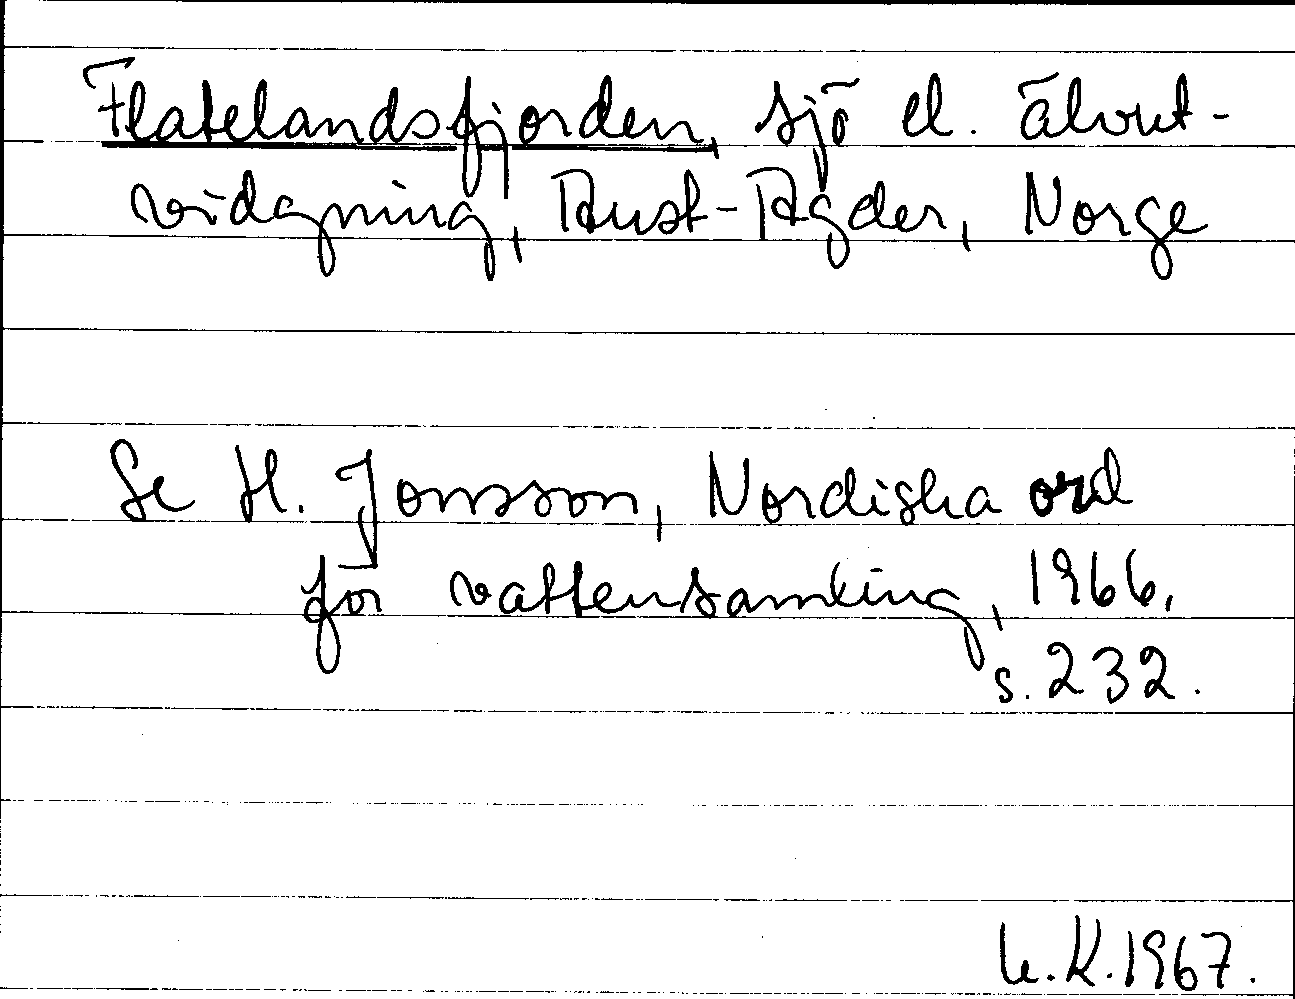 Flatelandsfjorden, sjö el. älvut-
vidgning, Aust-Agder, Norge
Se H. Jonsson, Nordiska ord
för vattensamling, 1966,
s. 232.
L.K. 1967.